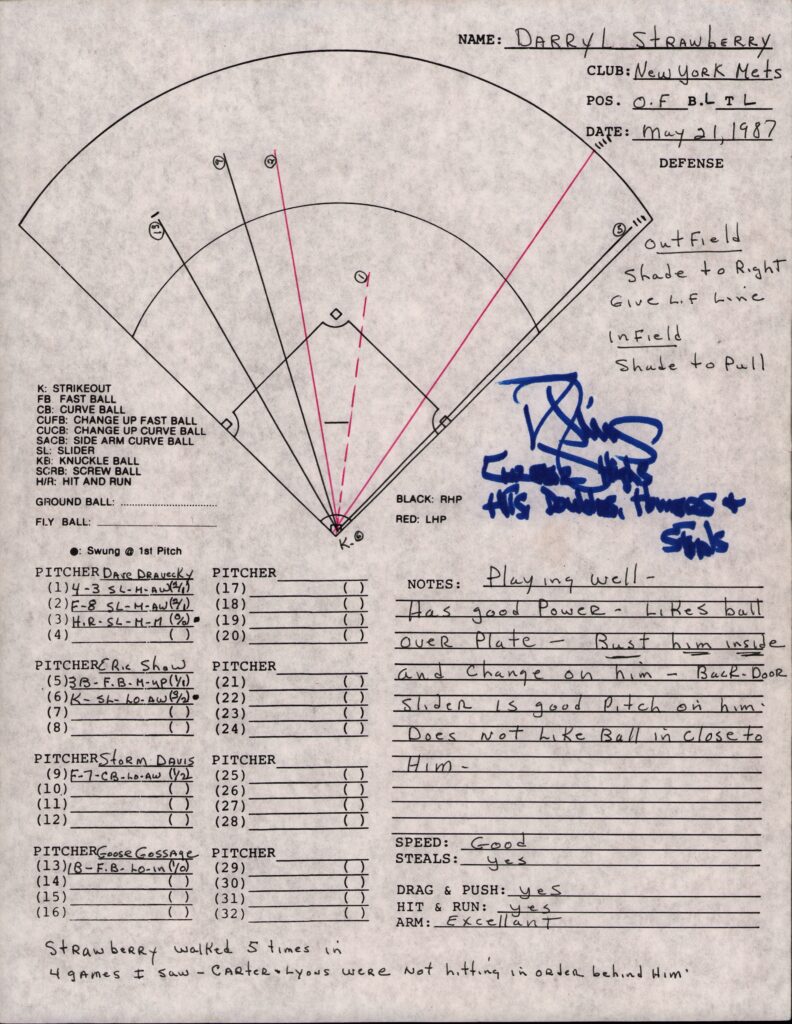 NAME: DARRYL STRAWBERRY
CLUB: New York Mets
POS. O.F B.L T L
DATE: May 21, 1987
DEFENSE
OutField
Shade to Right
Give L.F Line
InField
Shade to Pull
9
2
13
1
5
K-6
K: STRIKEOUT
FB FAST BALL
CB: CURVE BALL
CUFB: CHANGE UP FAST BALL
CUCB: CHANGE UP CURVE BALL
SACB: SIDE ARM CURVE BALL
SL: SLIDER
KB: KNUCKLE BALL
SCRB: SCREW BALL
H/R: HIT AND RUN
GROUND BALL:
FLY BALL:
BLACK: RHP
RED: LHP
●: Swung @ 1st Pitch
Hits, Doubles, Homers +
PITCHER Dave Dravecky
(1) 4-3 SL-M-AW (2/1)
(2) F-8 SL-M-AW (2/1)
(3) H.R-SL-M-M (0/0) ●
(4) ( )
PITCHER Eric Show
(5) 3B-F.B-M-UP (1/1)
(6) K-SL-LO-AW (3/2) ●
(7) ( )
(8) ( )
PITCHER Storm Davis
(9) F-7-CB-LO-AW (1/2)
(10) ( )
(11) ( )
(12) ( )
PITCHER Goose Gossage
(13) 1B-F.B-LO-in (1/0)
(14) ( )
(15) ( )
(16) ( )
PITCHER
(17) ( )
(18) ( )
(19) ( )
(20) ( )
PITCHER
(21) ( )
(22) ( )
(23) ( )
(24) ( )
PITCHER
(25) ( )
(26) ( )
(27) ( )
(28) ( )
PITCHER
(29) ( )
(30) ( )
(31) ( )
(32) ( )
NOTES: Playing well -
Has good Power - Likes ball
over Plate - Bust him inside
and Change on him - Back-Door
Slider is good Pitch on him.
Does not Like Ball in close to
Him -
SPEED: Good
STEALS: yes
DRAG & PUSH: yes
HIT & RUN: yes
ARM: Excellant
Strawberry walked 5 times in
4 games I saw - Carter + Lyons were not hitting in order behind Him.